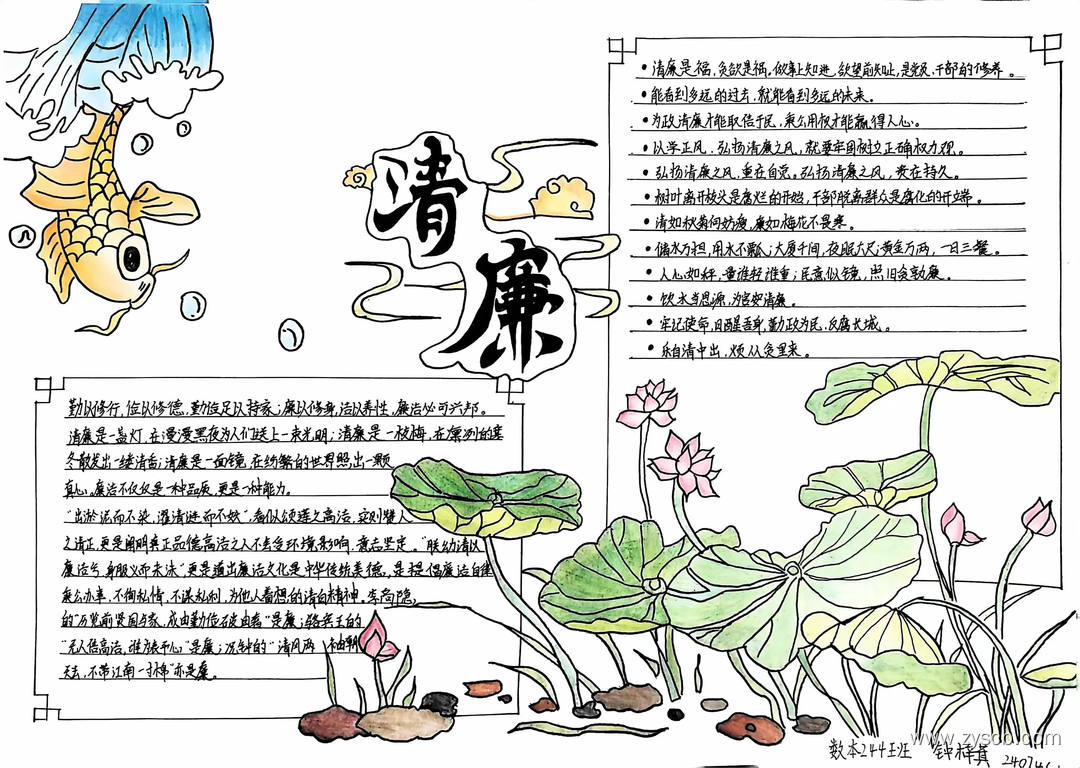 清廉
• 清廉是福,贪欲是祸。做事上知进,欲望前知止,是党员、干部的修养。
• 能看到多远的过去,就能看到多远的未来。
• 为政清廉才能取信于民,秉公用权才能赢得人心。
• 以学正风,弘扬清廉之风,就要牢固树立正确权力观。
• 弘扬清廉之风,重在自觉。弘扬清廉之风,贵在持久。
• 树叶离开枝头是腐烂的开始,干部脱离群众是腐化的开端。
• 清如秋菊何妨瘦,廉如梅花不畏寒。
• 储水万担,用水不瓢;大厦千间,夜眠六尺;黄金万两,一日三餐。
• 人心如秤,量谁轻谁重;民意似镜,照旧贪勤廉。
• 饮水当思源,为官安清廉。
• 牢记使命,日醒吾身,勤政为民,反腐长城。
• 乐自清中出,烦从贪里来。
勤以修行,位以修德,勤位足以持家;廉以修身,洁以养性,廉洁必可兴邦。
清廉是一盏灯,在漫漫黑夜为人们送上一束光明;清廉是一枝梅,在凛冽的寒
冬散发出一缕清香;清廉是一面镜,在纷繁的世界照出一颗
真心。廉洁不仅仅是一种品质,更是一种能力。
“出淤泥而不染,濯清涟而不妖”,看似颂莲之高洁,实则赞人
之清正,更是阐明真正品德高洁之人不会受环境影响,意志坚定。“朕幼清以
廉洁兮,身服义而未沫”更是道出廉洁文化是中华传统美德,是提倡廉洁自律
秉公办事,不徇私情,不谋私利,为他人着想的清白精神。李商隐
的“历览前贤国与家,成由勤俭破由奢”是廉;骆宾王的
“无人信高洁,谁为表予心”是廉;况钟的“清风两袖朝
天去,不带江南一寸棉”亦是廉。
数本244班 钟梓其
www.zyscb.com